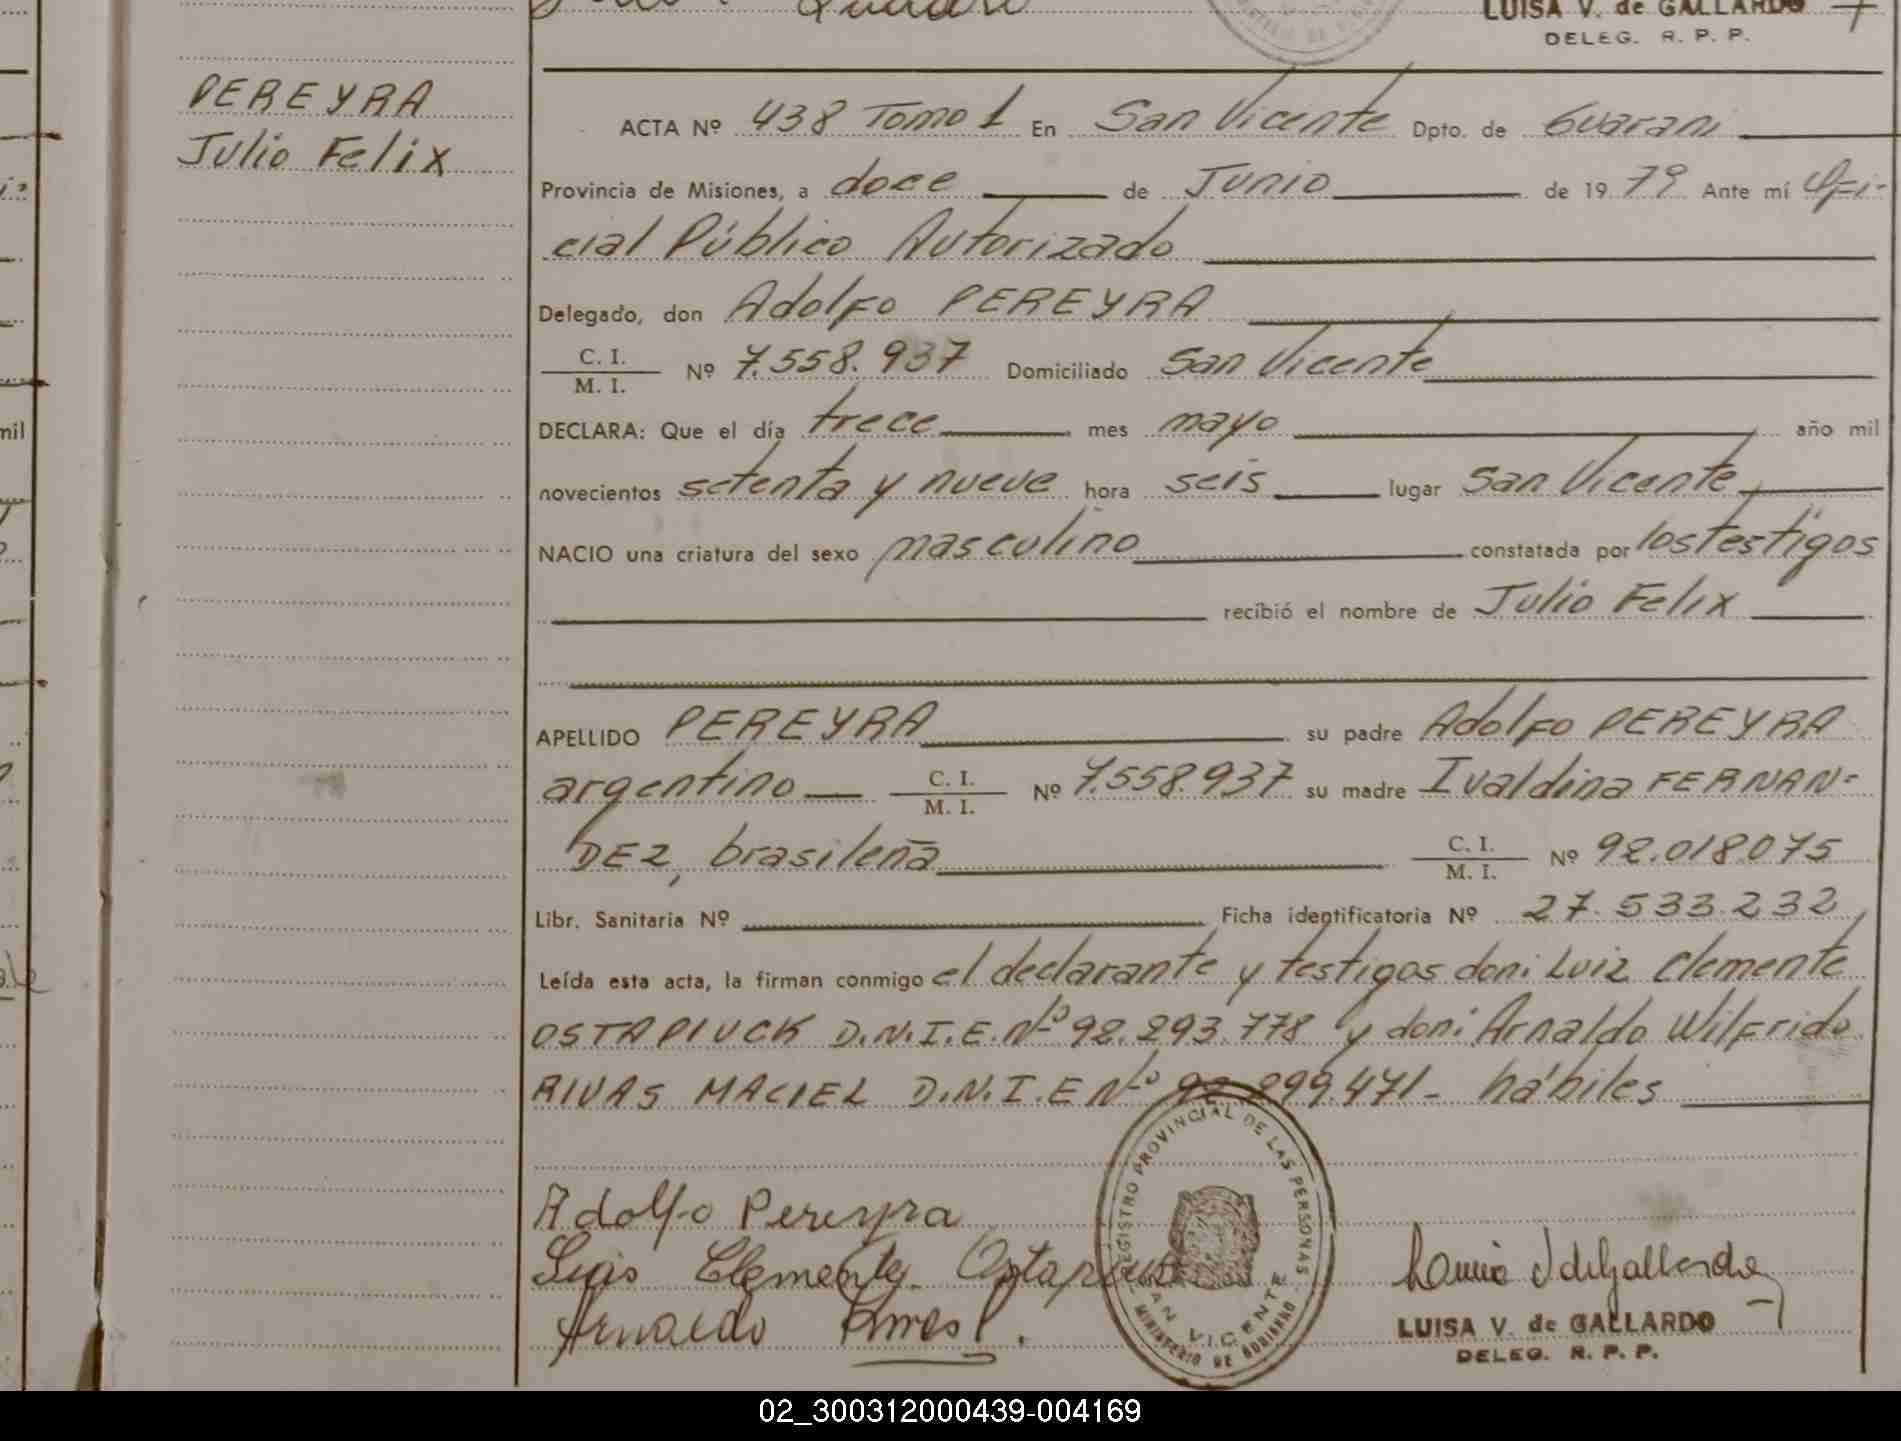 LUISA V. de GALLARDO
DELEG. R. P. P.
PEREYRA
Julio Felix
ACTA Nº 438 Tomo 1 En San Vicente Dpto. de Guarani
Provincia de Misiones, a doce de Junio de 1979 Ante mí Ofi-
cial Público Autorizado
Delegado, don Adolfo PEREYRA
C. I.
M. I. Nº 7.558.937 Domiciliado San Vicente
DECLARA: Que el día trece mes mayo año mil
novecientos setenta y nueve hora seis lugar San Vicente
NACIO una criatura del sexo masculino constatada por los testigos
recibió el nombre de Julio Felix
APELLIDO PEREYRA su padre Adolfo PEREYRA
argentino C. I.
M. I. Nº 7.558.937 su madre Ivaldina FERNAN-
DEZ, brasileña C. I.
M. I. Nº 92.018075
Libr. Sanitaria Nº Ficha identificatoria Nº 27.533.232
Leída esta acta, la firman conmigo el declarante y testigos don: Luiz Clemente
OSTAPIUCK D.N.I.E.Nº 92.293.778 y don: Arnaldo Wilfrido
RIVAS MACIEL D.N.I.E Nº 92.899.471- hábiles
Adolfo Pereyra
Luis Clemente
Arnaldo
REGISTRO PROVINCIAL DE LAS PERSONAS
SAN VICENTE
MINISTERIO DE GOBIERNO
LUISA V. de GALLARDO
DELEG. R. P. P.
mil
02_300312000439-004169